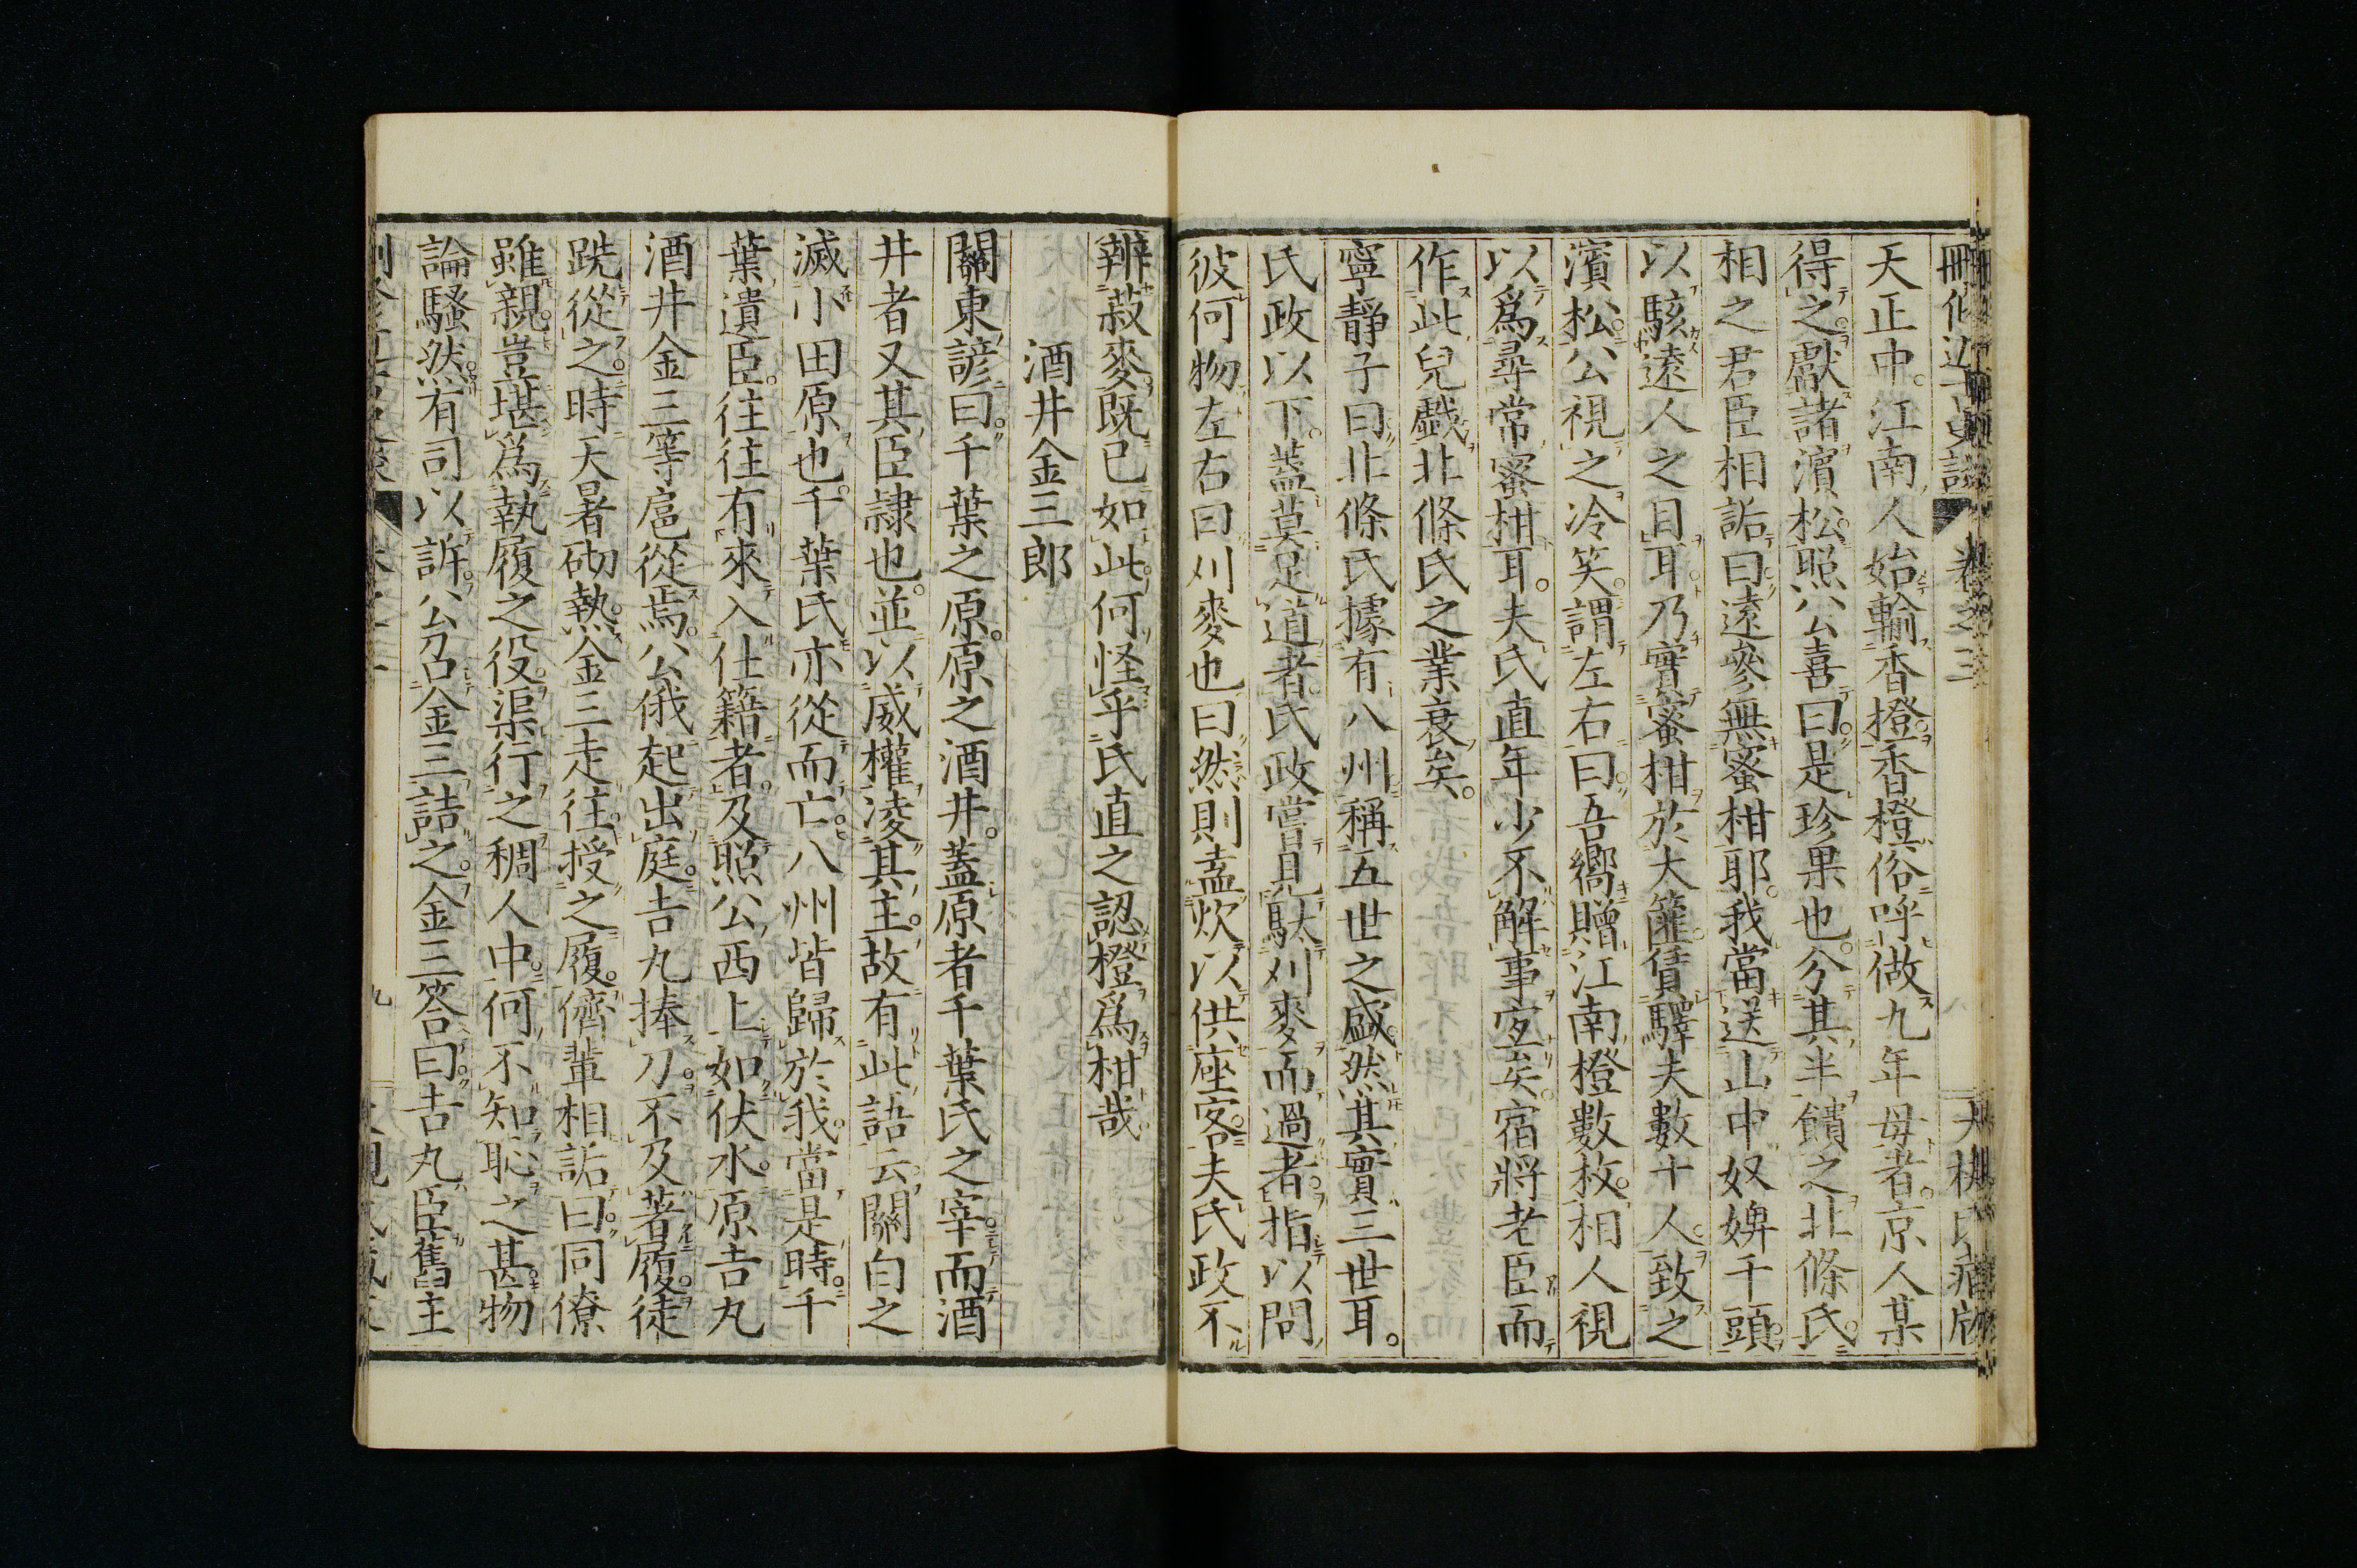 天正中。江南人始輸香橙。香橙俗呼做九年母者。京人某
得之。獻諸濱松。照公喜曰。是珍果也。分其半饋之北條氏。
相之君臣相詬曰。遠參無蜜柑耶。我當送山中奴婢千頭。
以駭遠人之目耳。乃實蜜柑於大篚。賃驛夫數十人。致之
濱松。公視之冷笑。謂左右曰。吾嚮贈江南橙數枚。相人視
以為尋常蜜柑耳。夫氏直年少不解事宜矣。宿將老臣而
作此兒戲。北條氏之業衰矣。
寧靜子曰。北條氏據有八州。稱五世之盛。然其實三世耳。
氏政以下。蓋莫足道者。氏政嘗見馱刈麥而過者。指以問
彼何物。左右曰刈麥也。曰然則盍炊以供座客。夫氏政不
辨菽麥。既已如此。何怪乎氏直之認橙為柑哉。
酒井金三郎
關東諺曰。千葉之原。原之酒井。蓋原者千葉氏之宰。而酒
井者又其臣隷也。並以威權凌其主。故有此語云。關白之
滅小田原也。千葉氏亦從而亡。八州皆歸於我。當是時。千
葉遺臣。往往有來入仕籍者。及照公西上如伏水。原吉丸
酒井金三等扈從焉。公俄起出庭。吉丸捧刀。不及著履。徒
跣從之。時天暑砌熱。金三走往授之履。儕輩相詬曰。同僚
雖親。豈堪為執履之役。渠行之稠人中。何不知恥之甚。物
論騷然。有司以訴。公召金三詰之。金三答曰。吉丸臣舊主